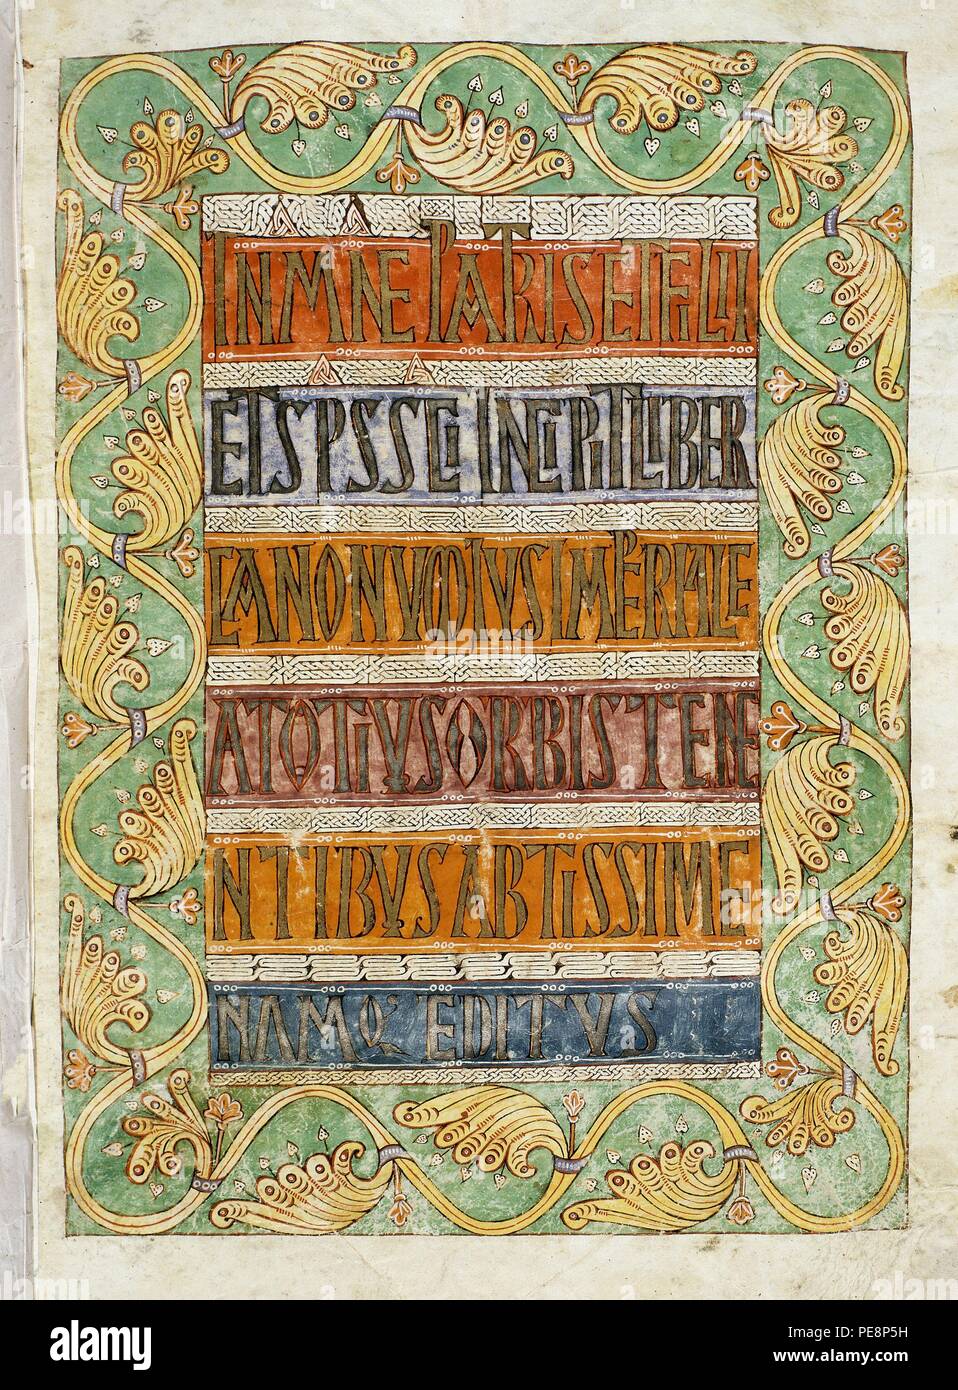 INMNE PATRIS ET FILII
ET SPS SCI INCIPIT LIBER
CANONUM TOTIUS IMPERIALE
A TOTIUS ORBIS TENE
NTIBUS ABTISSIME
NAMQ EDITUS
alamy
PE8P5H
www.alamy.com